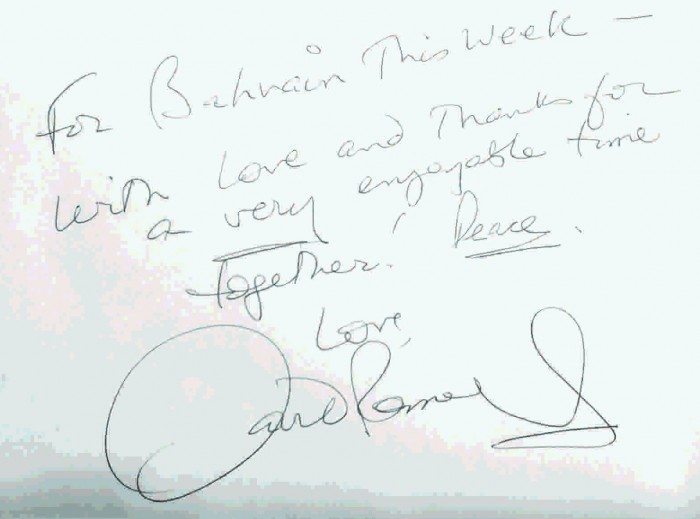 For Bahrain This Week –
with love and Thanks for
a very enjoyable time
together! Peace.
Love,